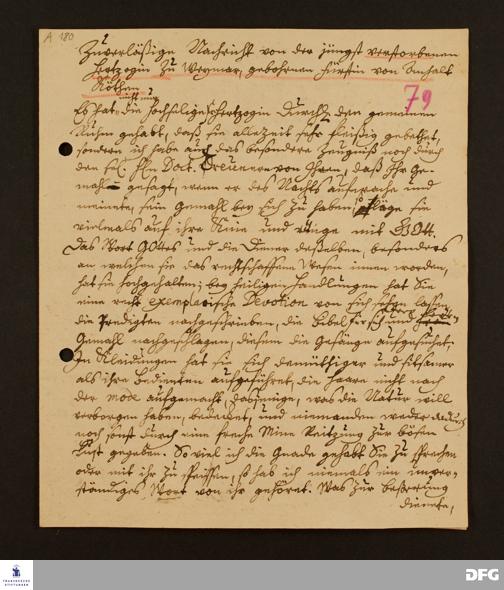 A 180
Zuverläßige Nachricht von der jüngst verstorbenen
Hertzogin zu Weymar, gebohrnen Fürstin von Anhalt
Köthen
79
Es hat die Hochselige Hertzogin durch den gemeinen
Ruhm gehabt, daß sie allezeit sehr fleißig gebethet,
sondern ich habe auch das besondere Zeugniß noch durch
den sel. Hn Doct. von Ihren, daß Ihr Ge-
mahl gesagt, wenn er des Nachts aufwache und
meinete, sein Gemahl bey sich zu haben, so läge sie
vielmals auf ihre Knie und ränge mit GOtt.
Das Wort GOttes und die Diener desselben, besonders
an welchen sie das rechtschaffene Wesen innen worden,
hat sie hochgehalten; bey heiligen Handlungen hat Sie
eine recht exemplarische Devotion von sich sehen lassen,
die Predigten nachgeschrieben, die Bibel für sich und
Gemahl nachgeschlagen, diesem die Gesänge aufgesuchet,
In Kleidungen hat sie sich demüthiger und sittsamer
als ihre Bedienten aufgeführet, die Haare nicht nach
der mode aufgemacht, dasjenige, was die Natur will
verborgen haben, bedecket, und niemanden weder dadurch
noch sonst durch eine freche Mine Reitzung zur bösen
Lust gegeben. So viel ich die Gnade gehabt Sie zu sprechen
oder mit ihr zu speissen, so hab ich niemals ein unver-
ständiges Wort von ihr gehöret. Was zur beßerung
dienete,
FRANCKESCHE
STIFTUNGEN
DFG